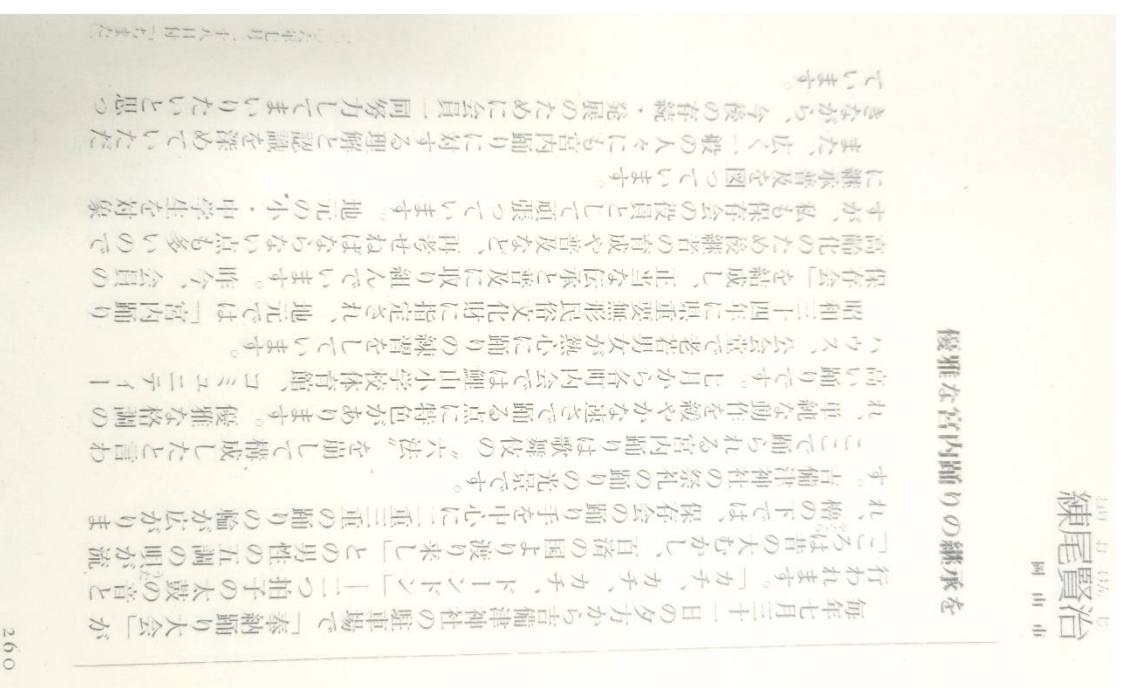 練尾賢治
岡山市
優雅な宮内踊りの継承を
毎年七月三十一日の夕方から吉備津神社の駐車場で「奉納踊り大会」が
行われます。「カチ、カチ、カチ、ドーンドン」―二つ拍子の太鼓の音と
「ころは昔の大むかし、百済の国より渡り来し」との男の性の五調の唄が流
れ、櫓の下では、保存会の踊り手を中心に二重三重の踊りの輪が広がりま
す。吉備津神社の祭礼の踊りの光景です。
ここで踊られる宮内踊りは歌舞伎の〝六法〟を崩して構成したと言わ
れ、単純な動作を緩やかな速さで踊る点に特色があります。優雅な格調の
高い踊りです。七月から各町内会では鯉山小学校体育館、コミュニティー
ハウス、公会堂で老若男女が熱心に踊りの練習をしています。
昭和三十四年に県重要無形民俗文化財に指定され、地元では「宮内踊り
保存会」を結成し、正当な伝承と普及に取り組んでいます。昨今、会員の
高齢化のため後継者の育成や普及など、再考せねばならない点も多いので
すが、私も保存会の役員として頑張っています。地元の小・中学生を対象
に継承普及を図っています。
また、広く一般の人々にも宮内踊りに対する理解と認識を深めていただ
きながら、今後の存続・発展のために会員一同努力してまいりたいと思っ
ています。
260